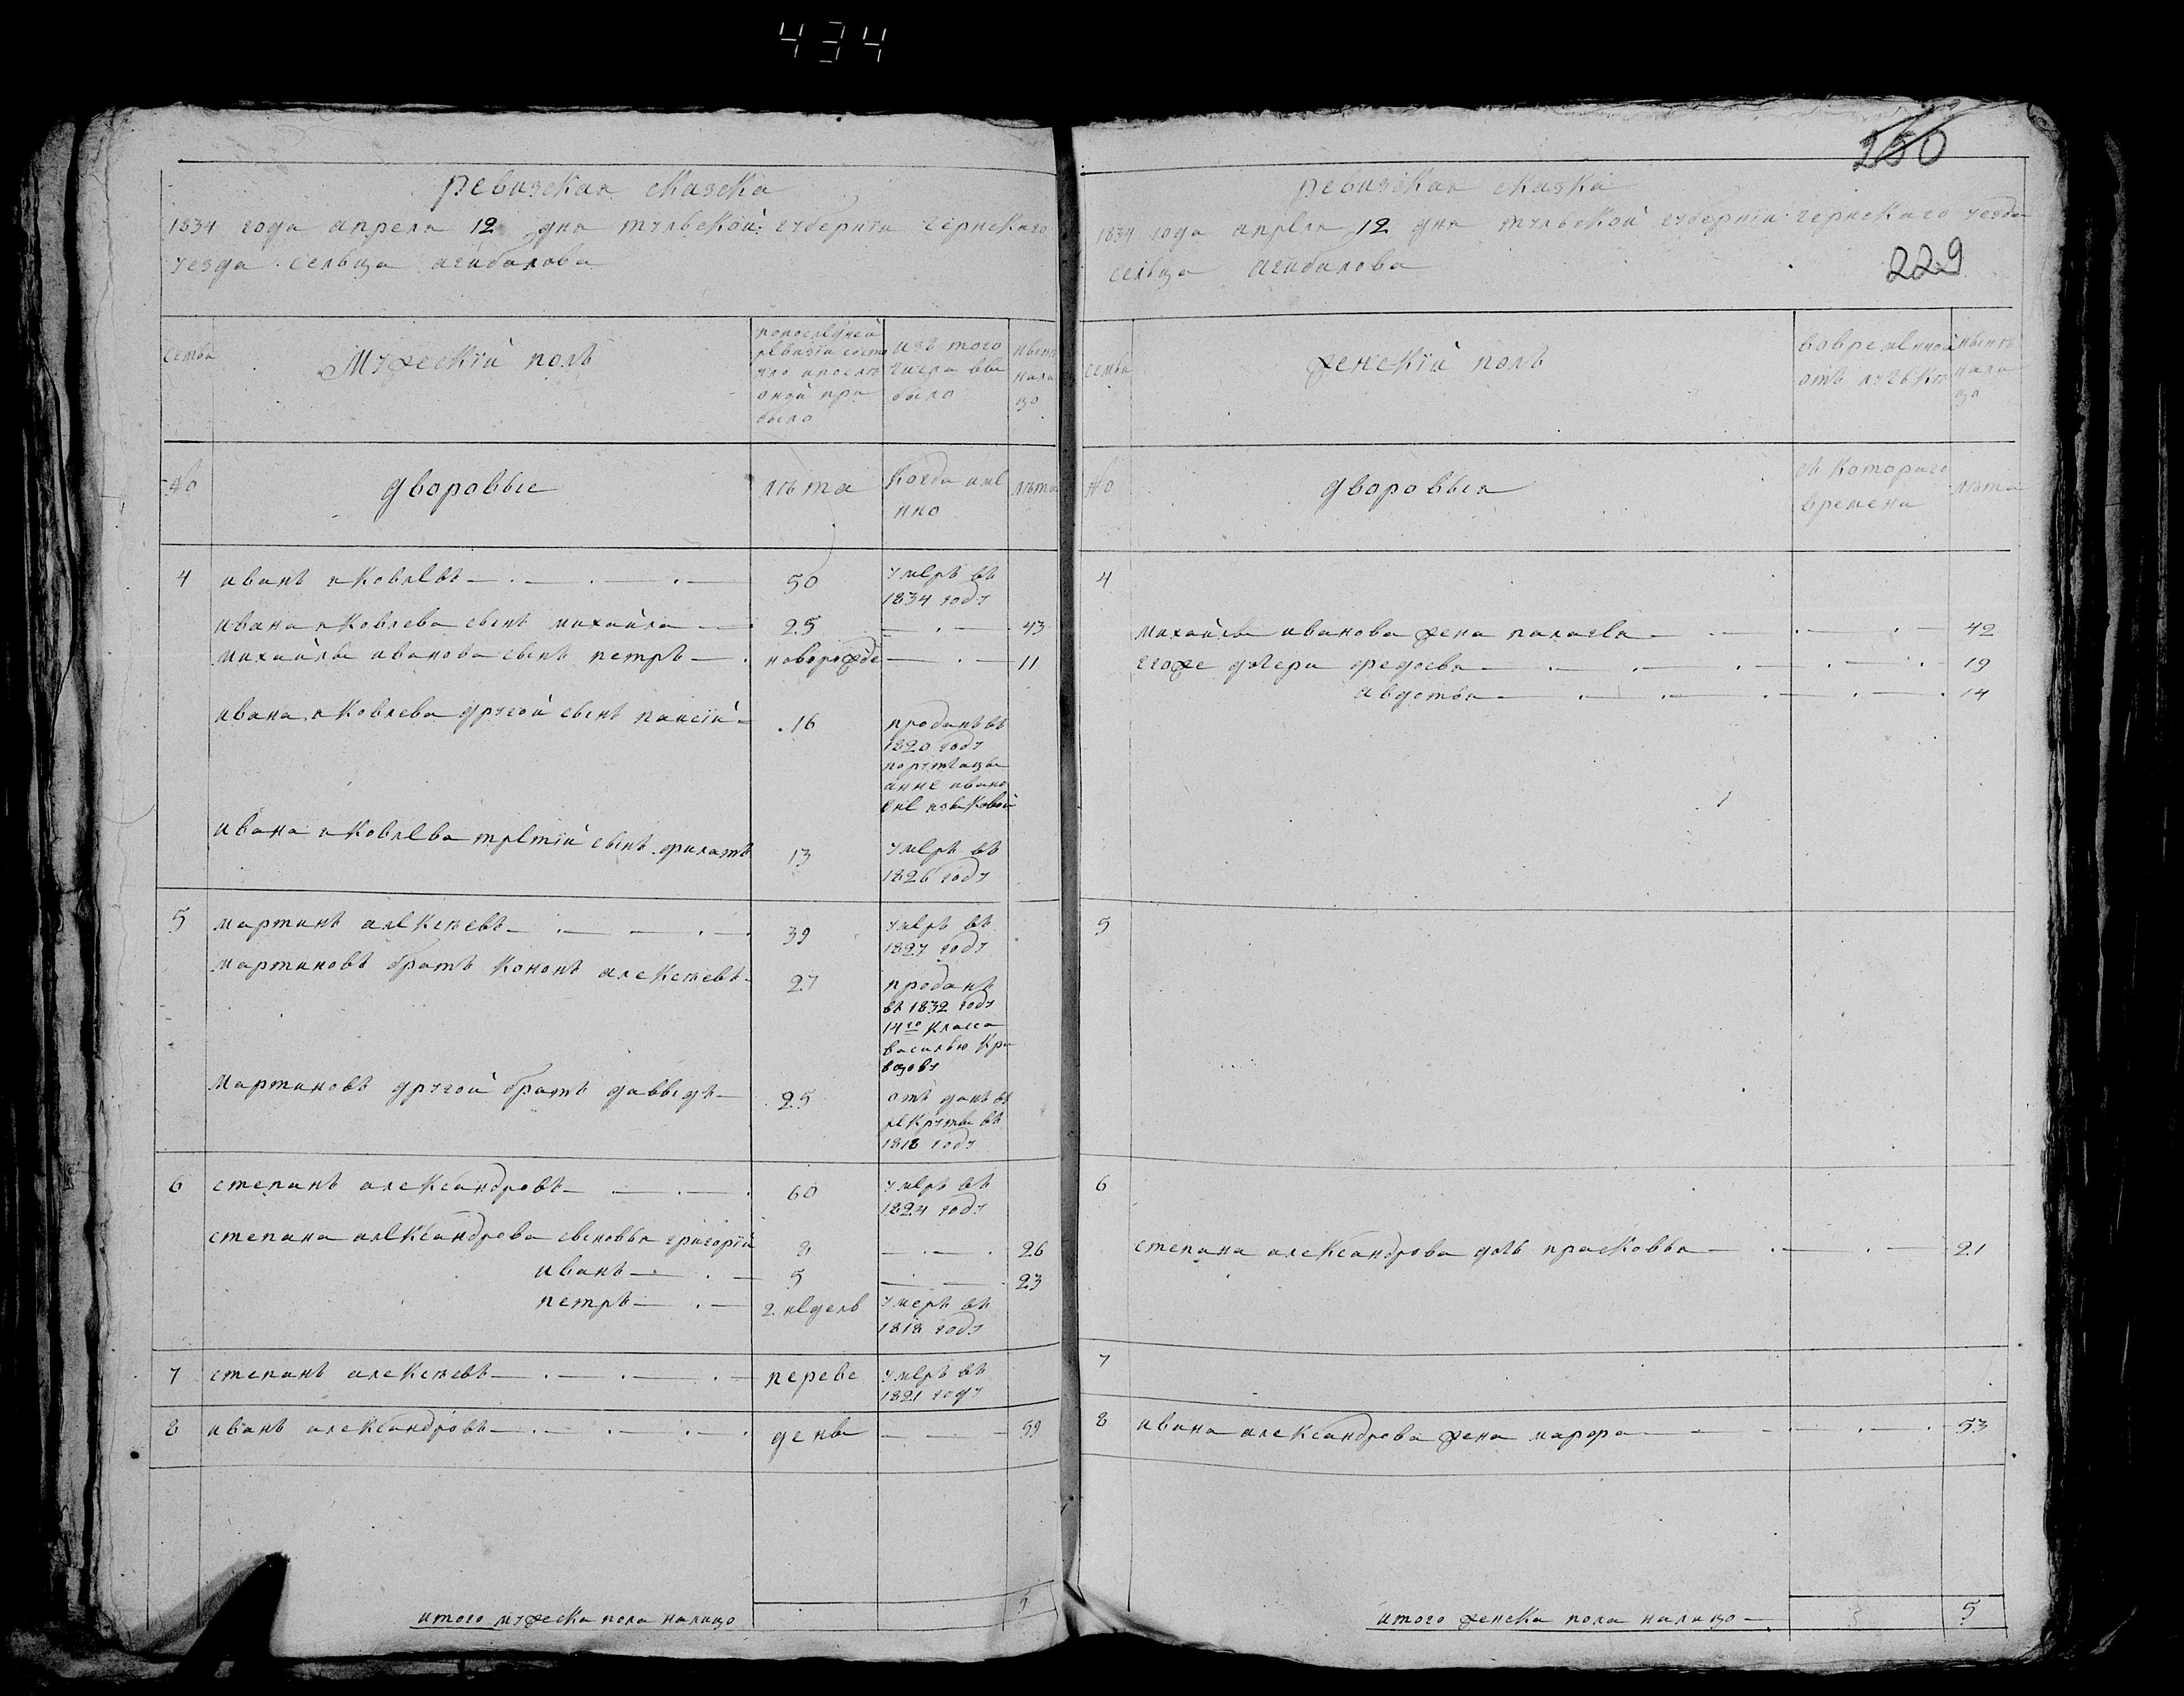 434
ревизская сказка
1834 года апреля 12 дня тульской губернїи чернскаго
уезда сельца агибалова
семьи
Мужескїй полъ
попоследней
ревизїи состо
яло ипосле
оной при
было
изъ того
числа вы
было
ныне
нали
цо
№
дворовые
лѣта
Когда име
нно
лѣта
4 иванъ яковлевъ 50 умеръ въ
1834 году
ивана яковлева сынъ михайла 25 43
михайлы иванова сынъ петръ новорожде 11
ивана яковлева другой сынъ паисїй 16 проданъ въ
1820 году
порутчицы
анне ивано
вне языковой
ивана яковлева третїй сынъ филатъ 13 умеръ въ
1826 году
5 мартинъ алексѣевъ 39 умеръ въ
1827 году
мартиновъ братъ кононъ алексѣевъ 27 проданъ
въ 1832 году
14го класса
василью Кри
вцову
мартиновъ другой братъ давыдъ 25 отъ данъ въ
рекруты въ
1818 году
6 степанъ александровъ 60 умеръ въ
1824 году
степана александрова сыновья григорїй 26
иванъ 5 23
петръ 2 недель умеръ въ
1818 году
7 степанъ алексѣевъ переве умеръ въ
1821 году
8 иванъ александровъ дены 59
итого мужеска пола налицо 5
250
ревизская сказка
1834 года апреля 12 дня тульской губернїи чернскаго уезда
сельца агибалова
229
семьи
женскїй полъ
вовременной
отъ лучьке
ныне
нали
цо
№
дворовыя
съ котораго
времени
лѣта
4
михайлы иванова жена палагея 42
егоже дочери федосья 19
авдотья 14
5
6
степана александрова дочь прасковья 21
7
8 ивана александрова жена марфа 53
итого женска пола налицо 5